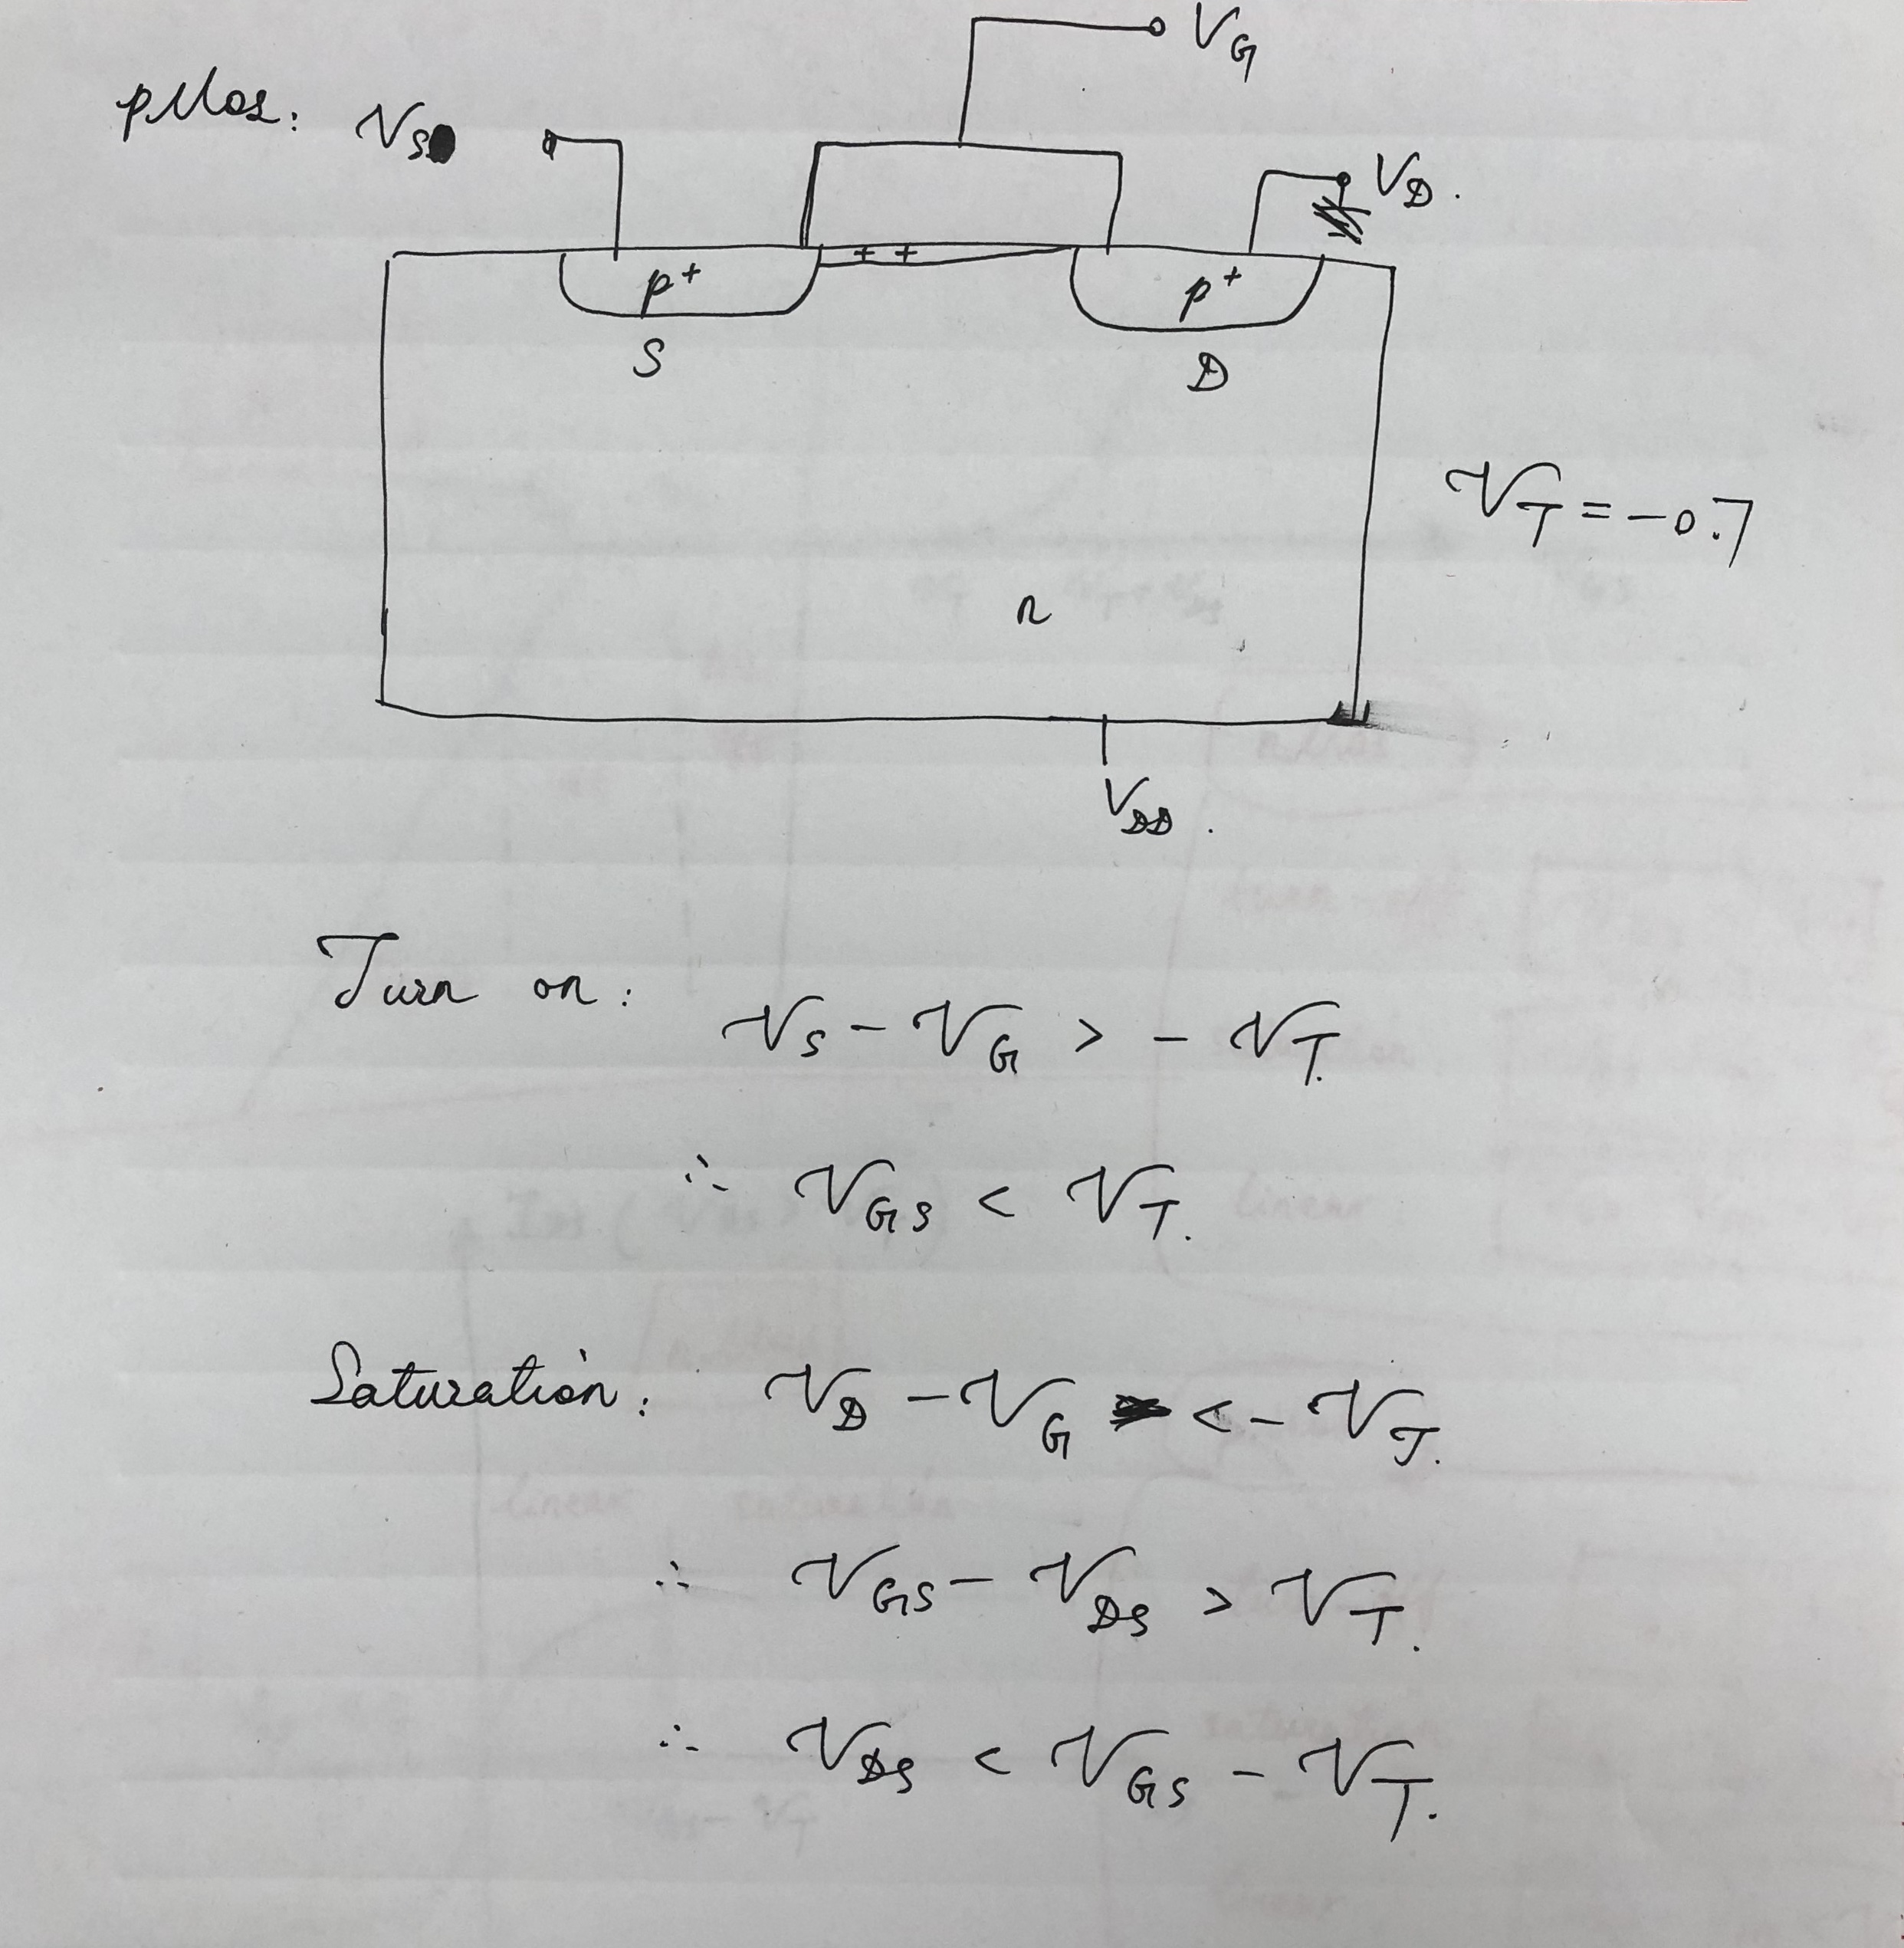 V_G
pMos: V_S
V_D.
+ +
p+ p+
S D
V_T = -0.7
n
V_DD.
Turn on:
V_S - V_G > - V_T.
∴ V_GS < V_T.
Saturation: V_D - V_G < - V_T.
∴ V_GS - V_DS > V_T.
∴ V_DS < V_GS - V_T.